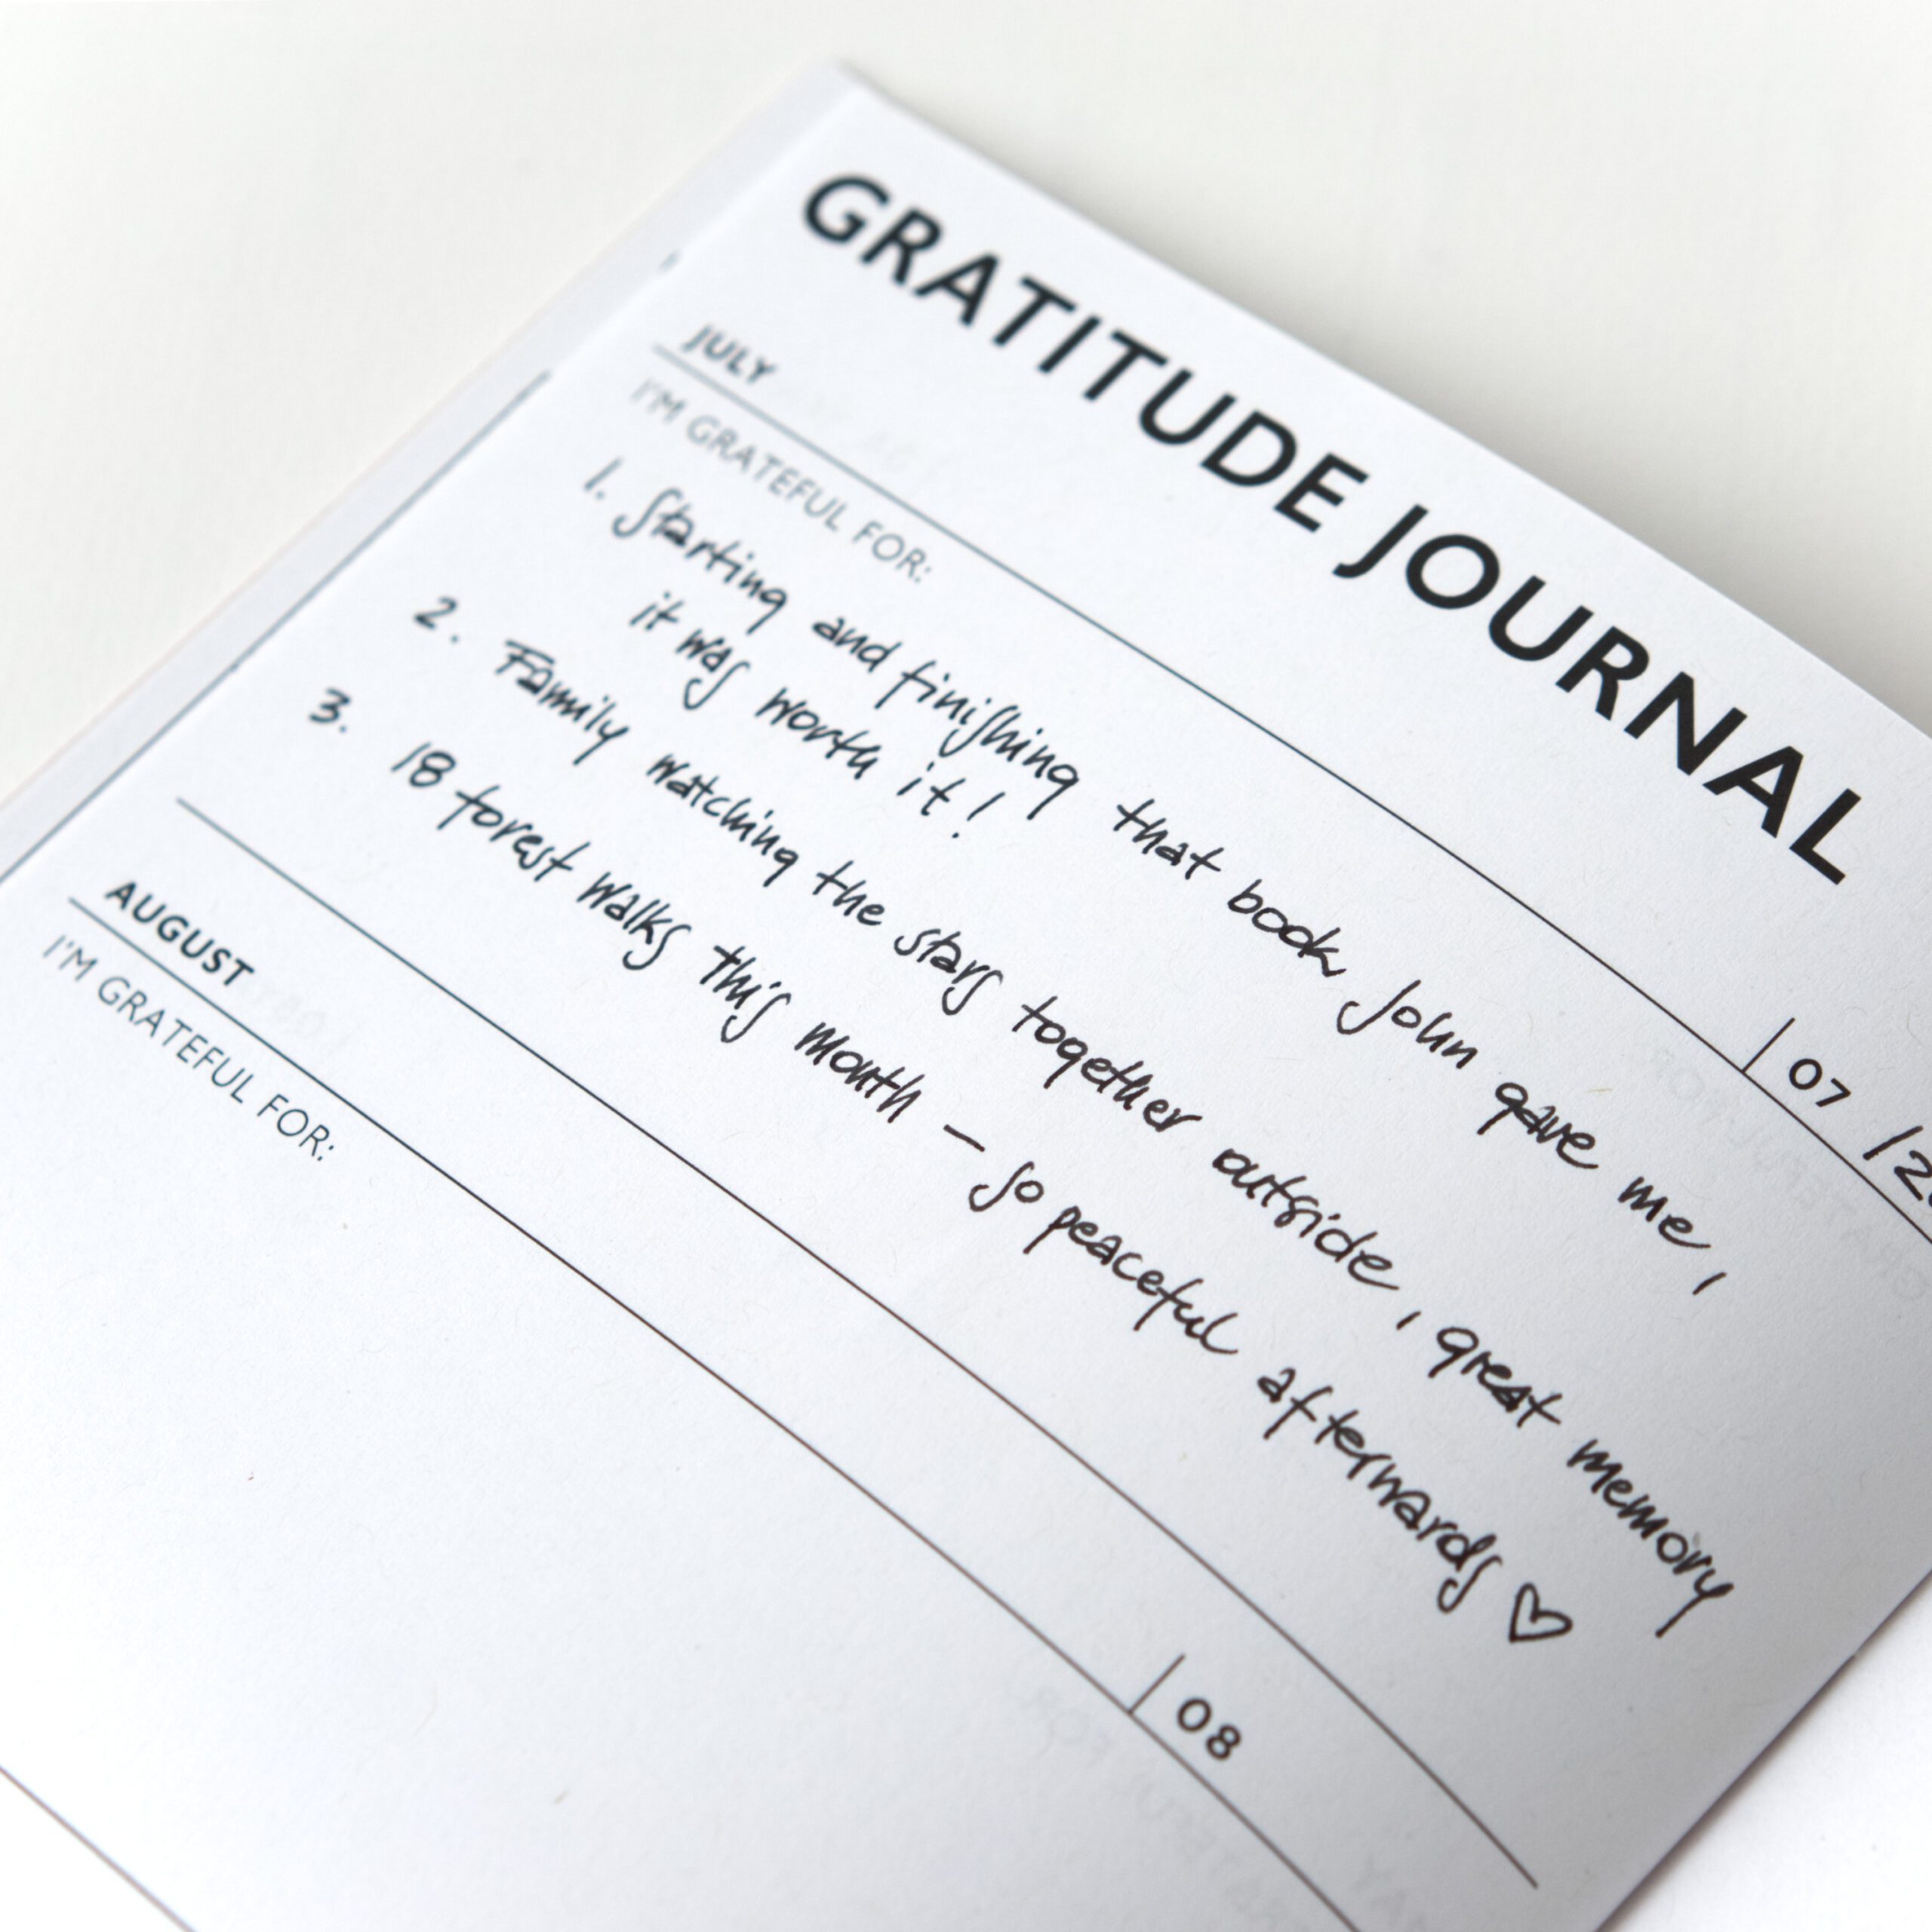 GRATITUDE JOURNAL
JULY 07
I'M GRATEFUL FOR:
1. Starting and finishing that book John gave me,
it was worth it!
2. Family watching the stars together outside, great memory
3. 18 forest walks this month — so peaceful afterwards ♡
AUGUST 08
I'M GRATEFUL FOR: